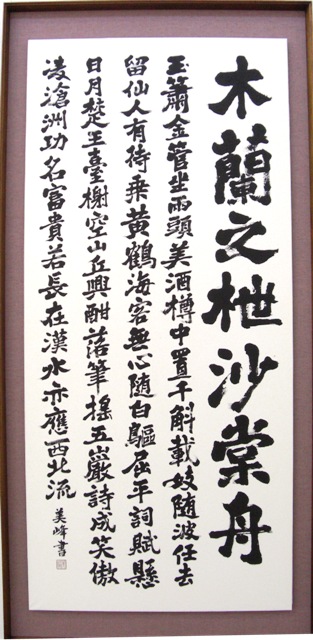 木蘭之枻沙棠舟
玉簫金管坐兩頭美酒樽中置千斛載妓随波任去
留仙人有待乗黄鶴海客無心随白鷗屈平詞賦懸
日月楚王臺榭空山丘興酣落筆搖五嶽詩成笑傲
凌滄洲功名富貴若長在漢水亦應西北流
美峰書